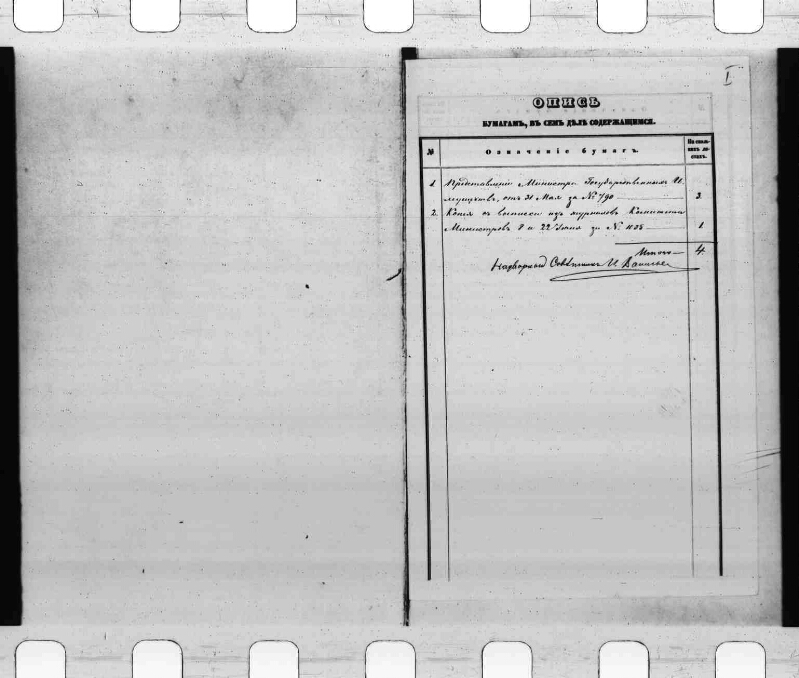 I
ОПИСЬ
БУМАГАМЪ, ВЪ СЕМЪ ДѢЛѢ СОДЕРЖАЩИМСЯ.
№ Означеніе бумагъ. На сколь-
кихъ ли-
стахъ.
1 Представленіе Министра Государственныхъ И-
муществъ, отъ 31 Мая за № 790 3.
2. Копія съ выписки изъ журналовъ Комитета
Министровъ 8 и 22 Іюня за №. 1.
Итого 4.
Надворный Совѣтникъ И.